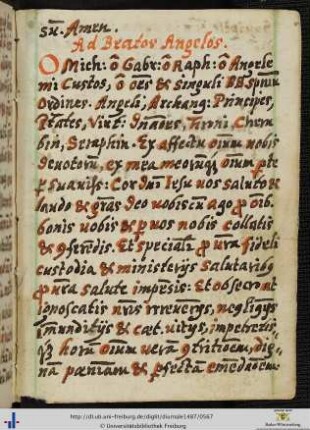 su. Amen.
Ad Beatos Angelos.
O Mich: ô Gabr: ô Raph: ô Angele
mi Custos, ô oēs & singuli BB. spūum
Ordines. Angeli, Archang: Principes,
Ptates, Virt: Dnāoēs, Throni Cheru
bin, Seraphin. Ex affectu oīum nobis
devotorū, ex mea meorumq oīum pte
suaviss: Cor Dnī Iesu vos saluto &
laudo & grās deo vobiscū ago p oīb.
bonis vobis & p vos nobis collatis
& 9ferēdis. Et speciali p vrā fideli
custodia & ministerijs salutaribq
p vrā salute impēsis: Et obsecro ut
ignoscatis nrīs irreverēs, negligijs
imunditijs & cæt. vitijs, impetretis,
horū oīum verā 9tritioēm, dig
nā pæniam & pfectā emēdaoēm
http://dl.ub.uni-freiburg.de/diglit/diurnale1487/0567
© Universitätsbibliothek Freiburg
Baden-Württemberg